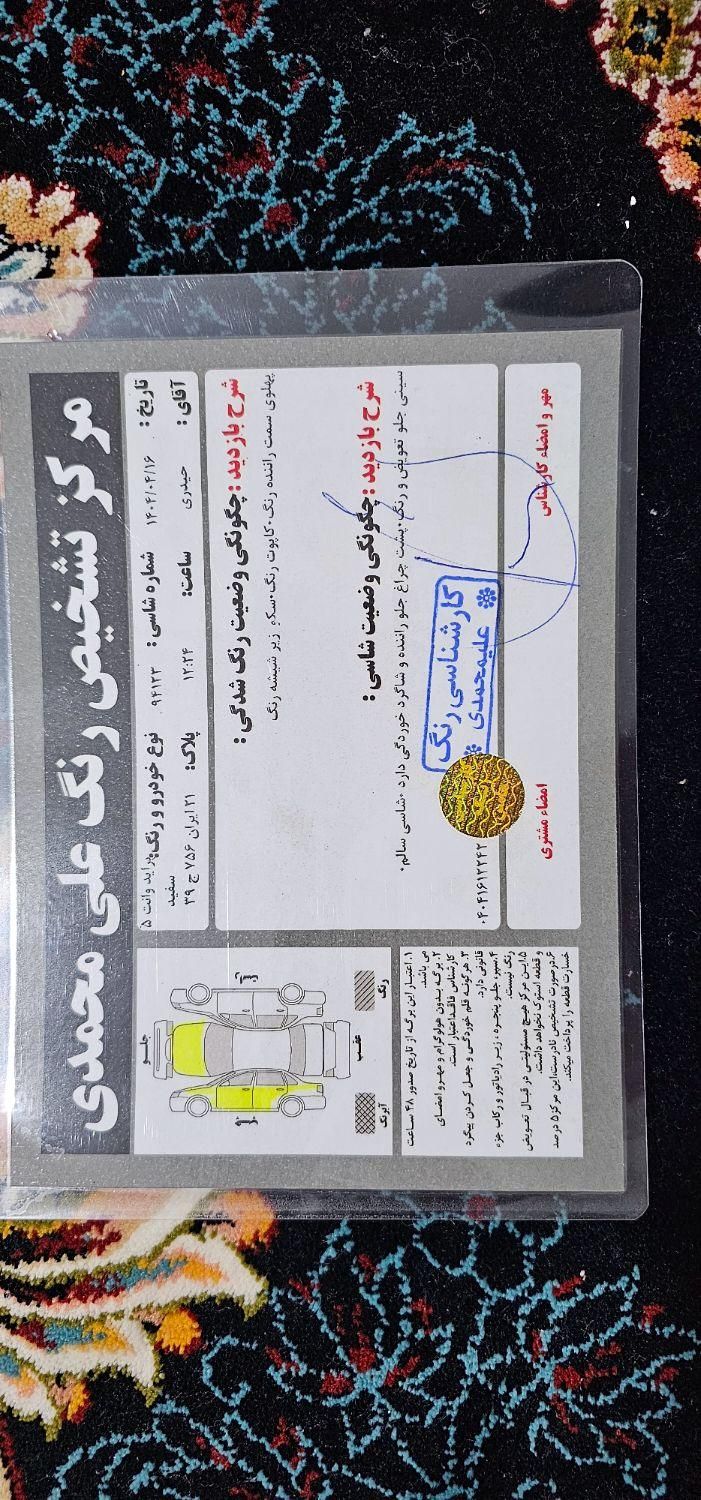 مرکز تشخیص رنگ علی محمدی
تاریخ: ۱۴۰۴/۰۴/۱۶ شماره شاسی: ۹۴۱۲۳ نوع خودرو و رنگ: پراید وانت ۵ سفید
آقای: حیدری ساعت: ۱۲:۲۴ پلاک: ۲۱ ایران ۷۵۶ ج ۳۹
شرح بازدید: چگونگی وضعیت رنگ شدگی:
پهلوی سمت راننده رنگ.کاپوت رنگ.سکه زیر شیشه رنگ
شرح بازدید: چگونگی وضعیت شاسی:
سینی جلو تعویض و رنگ.پشت چراغ جلو راننده و شاگرد خوردگی دارد.شاسی سالم.
کارشناسی رنگ
علیمحمدی
۰۴۰۴۱۶۱۲۲۴۲
مهر و امضاء کارشناس
امضاء مشتری
جلو
عقب
رنگ
آبرنگ
۱. اعتبار این برگه از تاریخ صدور ۴۸ ساعت می باشد.
۲. برگه بدون هولوگرام و مهر و امضای کارشناس فاقد اعتبار است.
۳. هرگونه قلم خوردگی و جعل کردن پیگرد قانونی دارد.
۴. سپر، جلو پنجره، زیر رادیاتور و رکاب جزء رنگ نیست.
۵. این مرکز هیچ مسئولیتی در قبال تعویض و قطعه استوک نخواهد داشت.
۶. درصورت تشخیص نادرست، این مرکز ۵ درصد خسارت قطعه را پرداخت میکند.